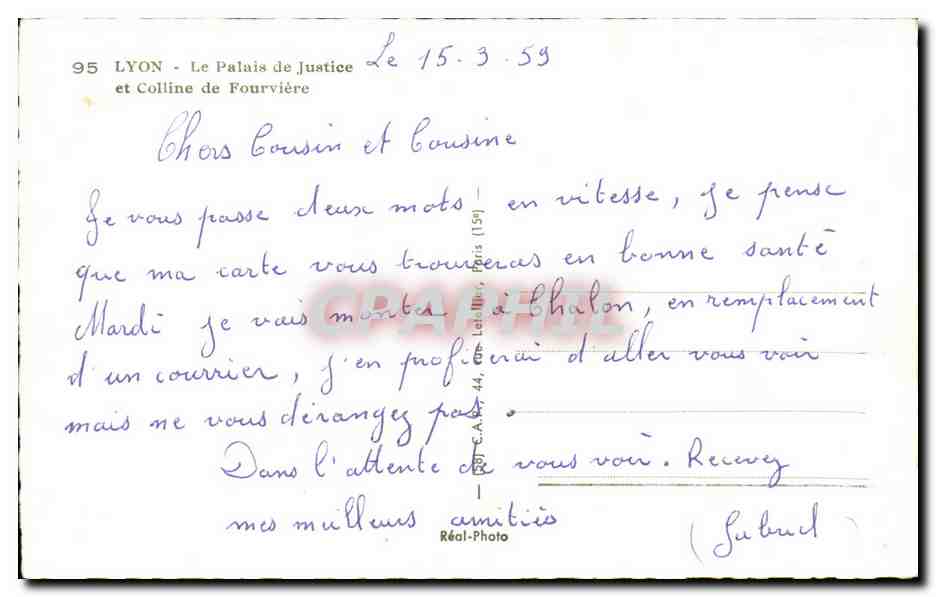 95 LYON - Le Palais de Justice
et Colline de Fourvière
Le 15.3.59
Chers Cousin et Cousine
Je vous passe deux mots en vitesse, je pense
que ma carte vous trouveras en bonne santé
Mardi je vais monter à Chalon, en remplacement
d'un courrier, j'en profiterai d'aller vous voir
mais ne vous dérangez pas.
Dans l'attente de vous voir. Recevez
mes meilleurs amitiés
(Gabriel)
Réal-Photo
(58) C.A.P. 44, rue Letellier, Paris (15e)
CPAPHIL